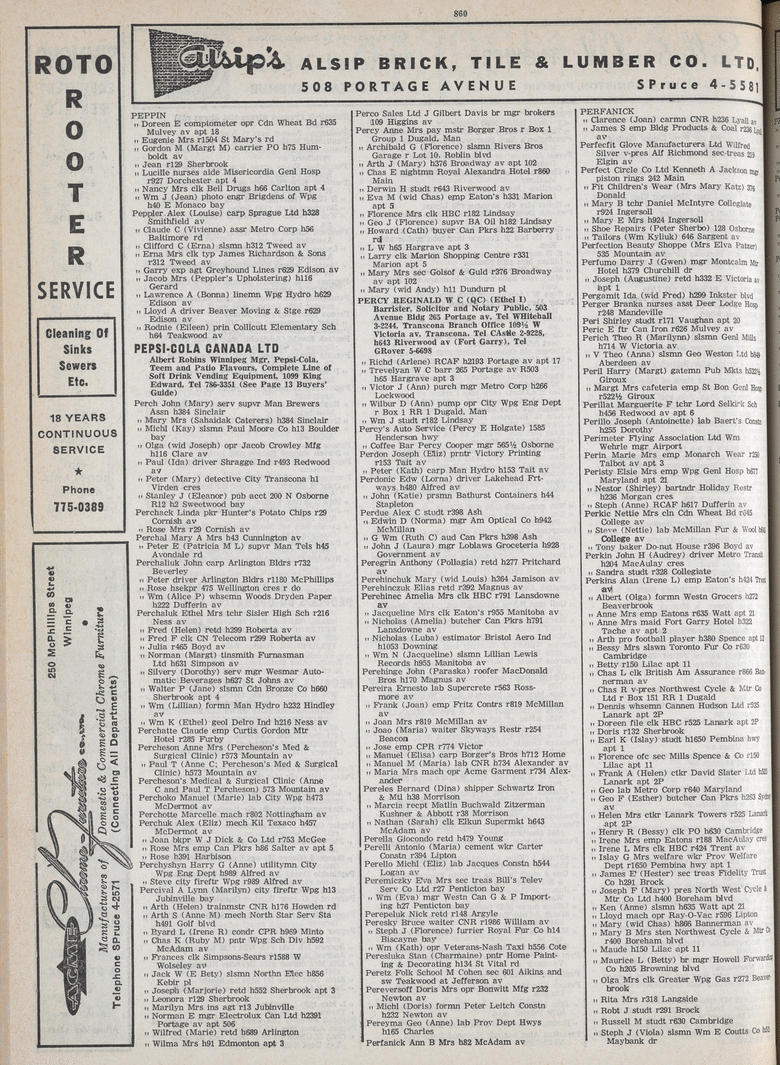 860
ROTO
R
O
O
T
E
R
SERVICE
Cleaning Of
Sinks
Sewers
Etc.
18 YEARS
CONTINUOUS
SERVICE
★
Phone
775-0389
250 McPhillips Street
Winnipeg
•
ACME Chrome Furniture
Manufacturers of Domestic & Commercial Chrome Furniture
Telephone SPruce 4-2571 (Connecting All Departments)
Alsip's ALSIP BRICK, TILE & LUMBER CO. LTD.
508 PORTAGE AVENUE SPruce 4-5581
PEPPIN
" Doreen E comptometer opr Cdn Wheat Bd r635
Mulvey av apt 18
" Eugenie Mrs r1504 St Mary's rd
" Gordon M (Margt M) carrier PO h75 Hum-
boldt av
" Jean r129 Sherbrook
" Lucille nurses aide Misericordia Genl Hosp
r927 Dorchester apt 4
" Nancy Mrs clk Bell Drugs h66 Carlton apt 4
" Wm J (Jean) photo engr Brigdens of Wpg
h40 E Monaco bay
Peppler Alex (Louise) carp Sprague Ltd h328
Smithfield av
" Claude C (Vivienne) assr Metro Corp h56
Baltimore rd
" Clifford C (Erna) slsmn h312 Tweed av
" Erna Mrs clk typ James Richardson & Sons
r312 Tweed av
" Garry exp agt Greyhound Lines r629 Edison av
" Jacob Mrs (Peppler's Upholstering) h116
Gerard
" Lawrence A (Bonna) linemn Wpg Hydro h629
Edison av
" Lloyd A driver Beaver Moving & Stge r629
Edison av
" Rodnie (Eileen) prin Collicutt Elementary Sch
h64 Teakwood av
PEPSI-COLA CANADA LTD
Albert Robins Winnipeg Mgr, Pepsi-Cola,
Teem and Patio Flavours, Complete Line of
Soft Drink Vending Equipment, 1099 King
Edward, Tel 786-3351 (See Page 13 Buyers'
Guide)
Perch John (Mary) serv supvr Man Brewers
Assn h384 Sinclair
" Mary Mrs (Sahaidak Caterers) h384 Sinclair
" Michl (Kay) slsmn Paul Moore Co h13 Boulder
bay
" Olga (wid Joseph) opr Jacob Crowley Mfg
h116 Clare av
" Paul (Ida) driver Shragge Ind r493 Redwood
av
" Peter (Mary) detective City Transcona h1
Virden cres
" Stanley J (Eleanor) pub acct 200 N Osborne
R12 h2 Sweetwood bay
Perchack Linda pkr Hunter's Potato Chips r29
Cornish av
" Rose Mrs r29 Cornish av
Perchal Mary A Mrs h43 Cunnington av
" Peter E (Patricia M L) supvr Man Tels h45
Avondale rd
Perchaliuk John carp Arlington Bldrs r732
Beverley
" Peter driver Arlington Bldrs r1180 McPhillips
" Rose hsekpr 475 Wellington cres r do
" Wm (Alice P) whsemn Woods Dryden Paper
h222 Dufferin av
Perchaluk Ethel Mrs tchr Sisler High Sch r216
Ness av
" Fred (Helen) retd h299 Roberta av
" Fred F clk CN Telecom r299 Roberta av
" Julia r465 Boyd av
" Norman (Margt) tinsmith Furnasman
Ltd h631 Simpson av
" Silvery (Dorothy) serv mgr Wesmar Auto-
matic Beverages h627 St Johns av
" Walter P (Jane) slsmn Cdn Bronze Co h660
Sherbrook apt 4
" Wm (Lillian) formn Man Hydro h232 Hindley
av
" Wm K (Ethel) geol Delro Ind h216 Ness av
Perchatte Claude emp Curtis Gordon Mtr
Hotel r285 Furby
Percheson Anne Mrs (Percheson's Med &
Surgical Clinic) r573 Mountain av
" Paul T (Anne C; Percheson's Med & Surgical
Clinic) h573 Mountain av
Percheson's Medical & Surgical Clinic (Anne
C and Paul T Percheson) 573 Mountain av
Perchoko Manuel (Marie) lab City Wpg h473
McDermot av
Perchotte Marcelle mach r802 Nottingham av
Perchuk Alex (Eliz) mech Kil Texaco h457
McDermot av
" Joan bkpr W J Dick & Co Ltd r753 McGee
" Rose Mrs emp Can Pkrs h86 Salter av apt 5
" Rose h391 Harbison
Perchyshyn Harry G (Anne) utilitymn City
Wpg Eng Dept h989 Alfred av
" Steve city fireftr Wpg r989 Alfred av
Percival A Lynn (Marilyn) city fireftr Wpg h13
Jubinville bay
" Arth (Helen) trainmstr CNR h176 Howden rd
" Arth S (Anne M) mech North Star Serv Sta
h491 Golf blvd
" Byard L (Irene R) condr CPR h969 Minto
" Chas K (Ruby M) pntr Wpg Sch Div h592
McAdam av
" Frances clk Simpsons-Sears r1588 W
Wolseley av
" Jack W (E Bety) slsmn Northn Elec h856
Kebir pl
" Joseph (Marjorie) retd h552 Sherbrook apt 3
" Leonora r129 Sherbrook
" Marilyn Mrs ins agt r13 Jubinville
" Norman E mgr Electrolux Can Ltd h2391
Portage av apt 506
" Wilfred (Marie) retd h689 Arlington
" Wilma Mrs h91 Edmonton apt 3
Perco Sales Ltd J Gilbert Davis br mgr brokers
109 Higgins av
Percy Anne Mrs pay mstr Borger Bros r Box 1
Group 1 Dugald, Man
" Archibald G (Florence) slsmn Rivers Bros
Garage r Lot 10, Roblin blvd
" Arth J (Mary) h376 Broadway av apt 102
" Chas E nightmn Royal Alexandra Hotel r860
Main
" Derwin H studt r643 Riverwood av
" Eva M (wid Chas) emp Eaton's h331 Marion
apt 5
" Florence Mrs clk HBC r182 Lindsay
" Geo J (Florence) supvr BA Oil h182 Lindsay
" Howard (Cath) buyer Can Pkrs h22 Barberry
rd
" L W h65 Hargrave apt 3
" Larry clk Marion Shopping Centre r331
Marion apt 5
" Mary Mrs sec Golsof & Guld r376 Broadway
av apt 102
" Mary (wid Andy) h11 Dundurn pl
PERCY REGINALD W C (QC) (Ethel I)
Barrister, Solicitor and Notary Public, 503
Avenue Bldg 265 Portage av, Tel WHitehall
3-2244, Transcona Branch Office 109½ W
Victoria av, Transcona, Tel CAstle 2-9228,
h643 Riverwood av (Fort Garry), Tel
GRover 5-6698
" Richd (Arlene) RCAF h2193 Portage av apt 17
" Trevelyan W C barr 265 Portage av R503
h65 Hargrave apt 3
" Victor J (Ann) purch mgr Metro Corp h266
Lockwood
" Wilbur D (Ann) pump opr City Wpg Eng Dept
r Box 1 RR 1 Dugald, Man
" Wm J studt r182 Lindsay
Percy's Auto Service (Percy E Holgate) 1585
Henderson hwy
" Coffee Bar Percy Cooper mgr 565½ Osborne
Perdon Joseph (Eliz) prntr Victory Printing
r153 Tait av
" Peter (Kath) carp Man Hydro h153 Tait av
Perdonic Edw (Lorna) driver Lakehead Frt-
ways h480 Alfred av
" John (Katie) prsmn Bathurst Containers h44
Stapleton
Perdue Alex C studt r398 Ash
" Edwin D (Norma) mgr Am Optical Co h942
McMillan
" G Wm (Ruth C) aud Can Pkrs h398 Ash
" John J (Laura) mgr Loblaws Groceteria h928
Government av
Peregrin Anthony (Pollagia) retd h277 Pritchard
av
Perehinchuk Mary (wid Louis) h364 Jamison av
Perehinczuk Elias retd r392 Magnus av
Perehinec Amelia Mrs clk HBC r791 Lansdowne
av
" Jacqueline Mrs clk Eaton's r955 Manitoba av
" Nicholas (Amelia) butcher Can Pkrs h791
Lansdowne av
" Nicholas (Luba) estimator Bristol Aero Ind
h1053 Downing
" Wm N (Jacqueline) slsmn Lillian Lewis
Records h955 Manitoba av
Perehinge John (Paraska) roofer MacDonald
Bros h170 Magnus av
Pereira Ernesto lab Supercrete r563 Ross-
more av
" Frank (Joan) emp Fritz Contrs r819 McMillan
av
" Joan Mrs r819 McMillan av
" Joao (Maria) waiter Skyways Restr r254
Beacon
" Jose emp CPR r774 Victor
" Manuel (Elisa) carp Borger's Bros h712 Home
" Manuel M (Maria) lab CNR h734 Alexander av
" Maria Mrs mach opr Acme Garment r734 Alex-
ander
Pereles Bernard (Dina) shipper Shwartz Iron
& Mtl h38 Morrison
" Marcia recpt Matlin Buchwald Zitzerman
Kushner & Abbott r38 Morrison
" Nathan (Sarah) clk Elkun Supermkt h643
McAdam av
Perella Geacondo retd h479 Young
Perelli Antonio (Maria) cement wkr Carter
Constn r394 Lipton
Perello Michl (Eliz) lab Jacques Constn h544
Logan av
Peremiczky Eva Mrs sec treas Bill's Telev
Serv Co Ltd r27 Penticton bay
" Wm (Eva) mgr Westn Can G & P Import-
ing h27 Penticton bay
Perepeluk Nick retd r148 Argyle
Peresky Bruce waiter CNR r1986 William av
" Steph J (Florence) furrier Royal Fur Co h14
Biscayne bay
" Wm (Kath) opr Veterans-Nash Taxi h556 Cote
Peresluka Stan (Charmaine) pntr Home Paint-
ing & Decorating h134 St Vital rd
Peretz Folk School M Cohen sec 601 Aikins and
sw Teakwood at Jefferson av
Pereversoff Doris Mrs opr Bonwitt Mfg r232
Newton av
" Michl (Doris) formn Peter Leitch Constn
h232 Newton av
Pereyma Geo (Anne) lab Prov Dept Hwys
h165 Charles
Perfanick Ann B Mrs h82 McAdam av
PERFANICK
" Clarence (Joan) carmn CNR h236 Lyall av
" James S emp Bldg Products & Coal r236 Lyall
av
Perfecfit Glove Manufacturers Ltd Wilfred
Silver v-pres Alf Richmond sec-treas 219
Elgin av
Perfect Circle Co Ltd Kenneth A Jackson mgr
piston rings 242 Main
" Fit Children's Wear (Mrs Mary Katz) 376
Donald
" Mary B tchr Daniel McIntyre Collegiate
r924 Ingersoll
" Mary E Mrs h924 Ingersoll
" Shoe Repairs (Peter Sherbo) 128 Osborne
" Tailors (Wm Kyliuk) 646 Sargent av
Perfection Beauty Shoppe (Mrs Elva Patzer)
535 Mountain av
Perfumo Darry J (Gwen) mgr Montcalm Mtr
Hotel h379 Churchill dr
" Joseph (Augustine) retd h332 E Victoria av
apt 1
Pergamit Ida (wid Fred) h299 Inkster blvd
Perger Branka nurses asst Deer Lodge Hosp
r248 Mandeville
Peri Shirley studt r171 Vaughan apt 20
Peric E ftr Can Iron r626 Mulvey av
Perich Theo R (Marilyn) slsmn Genl Mills
h714 W Victoria av
" V Theo (Anna) slsmn Geo Weston Ltd
Aberdeen av
Peril Harry (Margt) gatemn Pub Mkts h522½
Giroux
" Margt Mrs cafeteria emp St Bon Genl Hosp
r522½ Giroux
Perillat Marguerite F tchr Lord Selkirk Sch
h456 Redwood av apt 6
Perillo Joseph (Antoinette) lab Baert's Constn
h255 Dorothy
Perimeter Flying Association Ltd Wm
Wehrle mgr Airport
Perin Marie Mrs emp Monarch Wear r250
Talbot av apt 3
Peristy Elsie Mrs emp Wpg Genl Hosp h677
Maryland apt 21
" Nestor (Shirley) bartndr Holiday Restr
h236 Morgan cres
" Steph (Anne) RCAF h617 Dufferin av
Perkic Nettie Mrs cln Cdn Wheat Bd r645
College av
" Steve (Nettie) lab McMillan Fur & Wool
College av
" Tony baker Do-nut House r396 Boyd av
Perkin John H (Audrey) driver Metro Transit
h204 MacAulay cres
" Sandra studt r328 Collegiate
Perkins Alan (Irene L) emp Eaton's h424 Trent
av
" Albert (Olga) formn Westn Grocers h272
Beaverbrook
" Anne Mrs emp Eatons r635 Watt apt 21
" Anne Mrs maid Fort Garry Hotel h322
Tache av apt 2
" Arth pro football player h380 Spence apt 12
" Bessy Mrs slswn Toronto Fur Co r630
Cambridge
" Betty r150 Lilac apt 11
" Chas L clk British Am Assurance r866 Ban-
nerman av
" Chas R v-pres Northwest Cycle & Mtr Co
Ltd r Box 151 RR 1 Dugald
" Dennis whsemn Cannen Hudson Ltd r525
Lanark apt 2P
" Doreen file clk HBC r525 Lanark apt 2P
" Doris r132 Sherbrook
" Earl K (Islay) studt h1650 Pembina hwy
apt 1
" Florence ofc sec Mills Spence & Co r150
Lilac apt 11
" Frank A (Helen) ctkr David Slater Ltd h525
Lanark apt 2P
" Geo lab Metro Corp r640 Maryland
" Geo F (Esther) butcher Can Pkrs h283 Sydney
av
" Helen Mrs ctkr Lanark Towers r525 Lanark
apt 2P
" Henry R (Bessy) clk PO h630 Cambridge
" Irene Mrs emp Eatons r188 MacAulay cres
" Irene L Mrs clk HBC r424 Trent av
" Islay G Mrs welfare wkr Prov Welfare
Dept r1650 Pembina hwy apt 1
" James E (Hester) sec treas Fidelity Trust
Co h291 Brock
" Joseph F (Mary) pres North West Cycle &
Mtr Co Ltd h400 Boreham blvd
" Ken (Anne) slsmn h635 Watt apt 21
" Lloyd mach opr Ray-O-Vac r596 Lipton
" Mary (wid Chas) h866 Bannerman av
" Mary B Mrs sten Northwest Cycle & Mtr Co
r400 Boreham blvd
" Maude h150 Lilac apt 11
" Maurice L (Betty) br mgr Howell Forwarding
Co h205 Browning blvd
" Olga Mrs clk Greater Wpg Gas r272 Beaver-
brook
" Rita Mrs r318 Langside
" Robt J studt r291 Brock
" Russell M studt r630 Cambridge
" Steph J (Viola) slsmn Wm E Coutts Co
Maybank dr